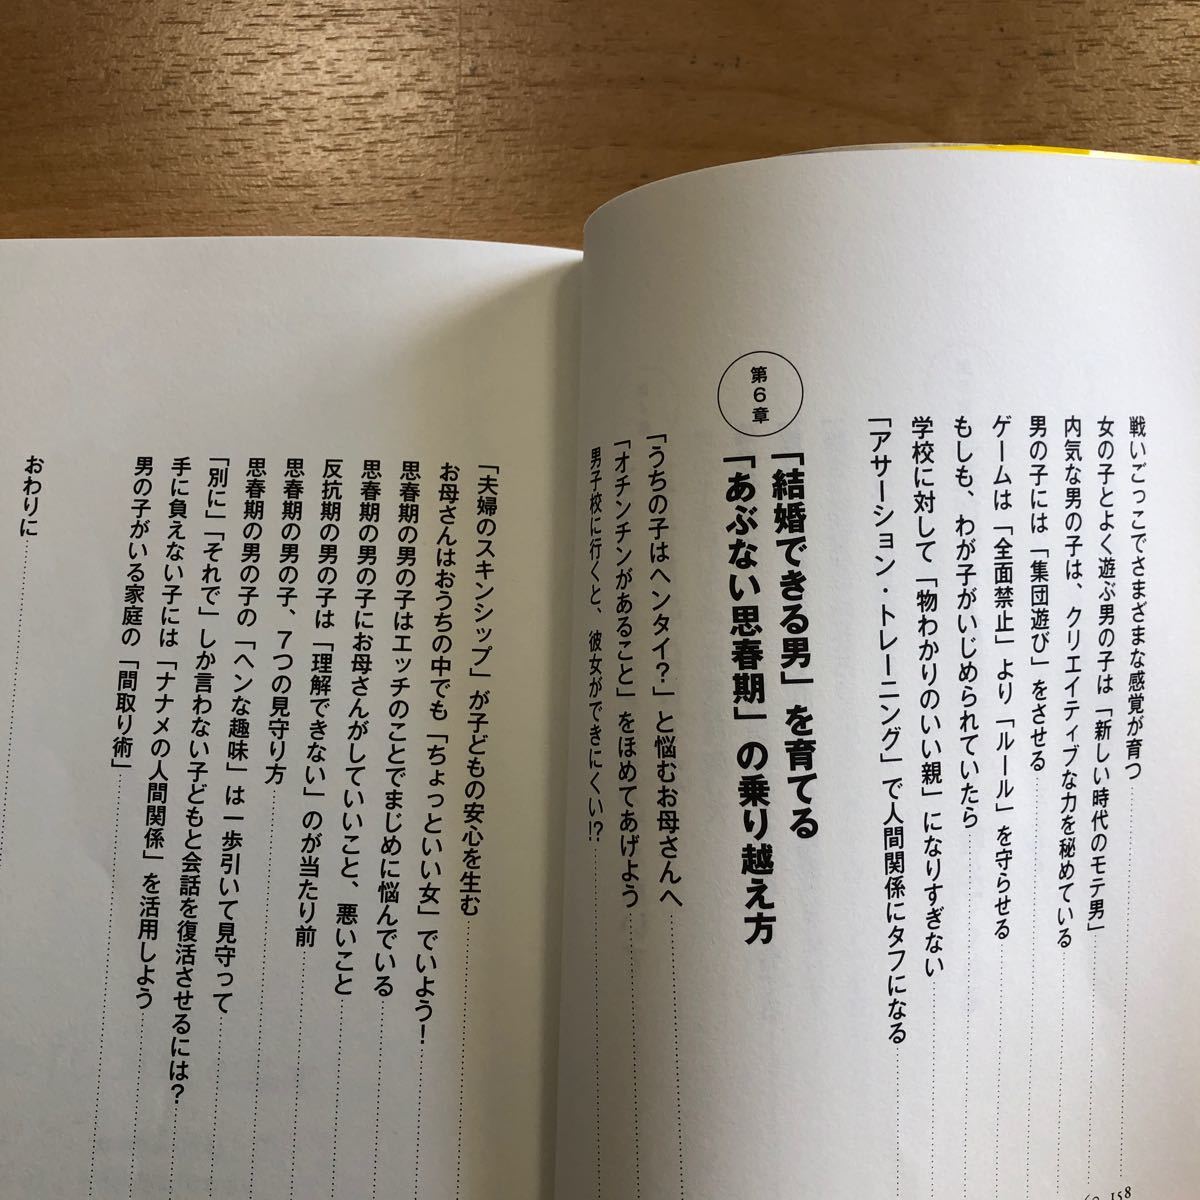 戦いごっこでさまざまな感覚が育つ
女の子とよく遊ぶ男の子は「新しい時代のモテ男」
内気な男の子は、クリエイティブな力を秘めている
男の子には「集団遊び」をさせる
ゲームは「全面禁止」より「ルール」を守らせる
もしも、わが子がいじめられていたら
学校に対して「物わかりのいい親」になりすぎない
「アサーション・トレーニング」で人間関係にタフになる
第6章
「結婚できる男」を育てる
「あぶない思春期」の乗り越え方
「うちの子はヘンタイ?」と悩むお母さんへ
「オチンチンがあること」をほめてあげよう
男子校に行くと、彼女ができにくい!?
158
「夫婦のスキンシップ」が子どもの安心を生む
お母さんはおうちの中でも「ちょっといい女」でいよう!
思春期の男の子はエッチのことでまじめに悩んでいる
思春期の男の子にお母さんがしていいこと、悪いこと
反抗期の男の子は「理解できない」のが当たり前
思春期の男の子、7つの見守り方
思春期の男の子の「ヘンな趣味」は一歩引いて見守って
「別に」「それで」しか言わない子どもと会話を復活させるには?
手に負えない子には「ナナメの人間関係」を活用しよう
男の子がいる家庭の「間取り術」
おわりに